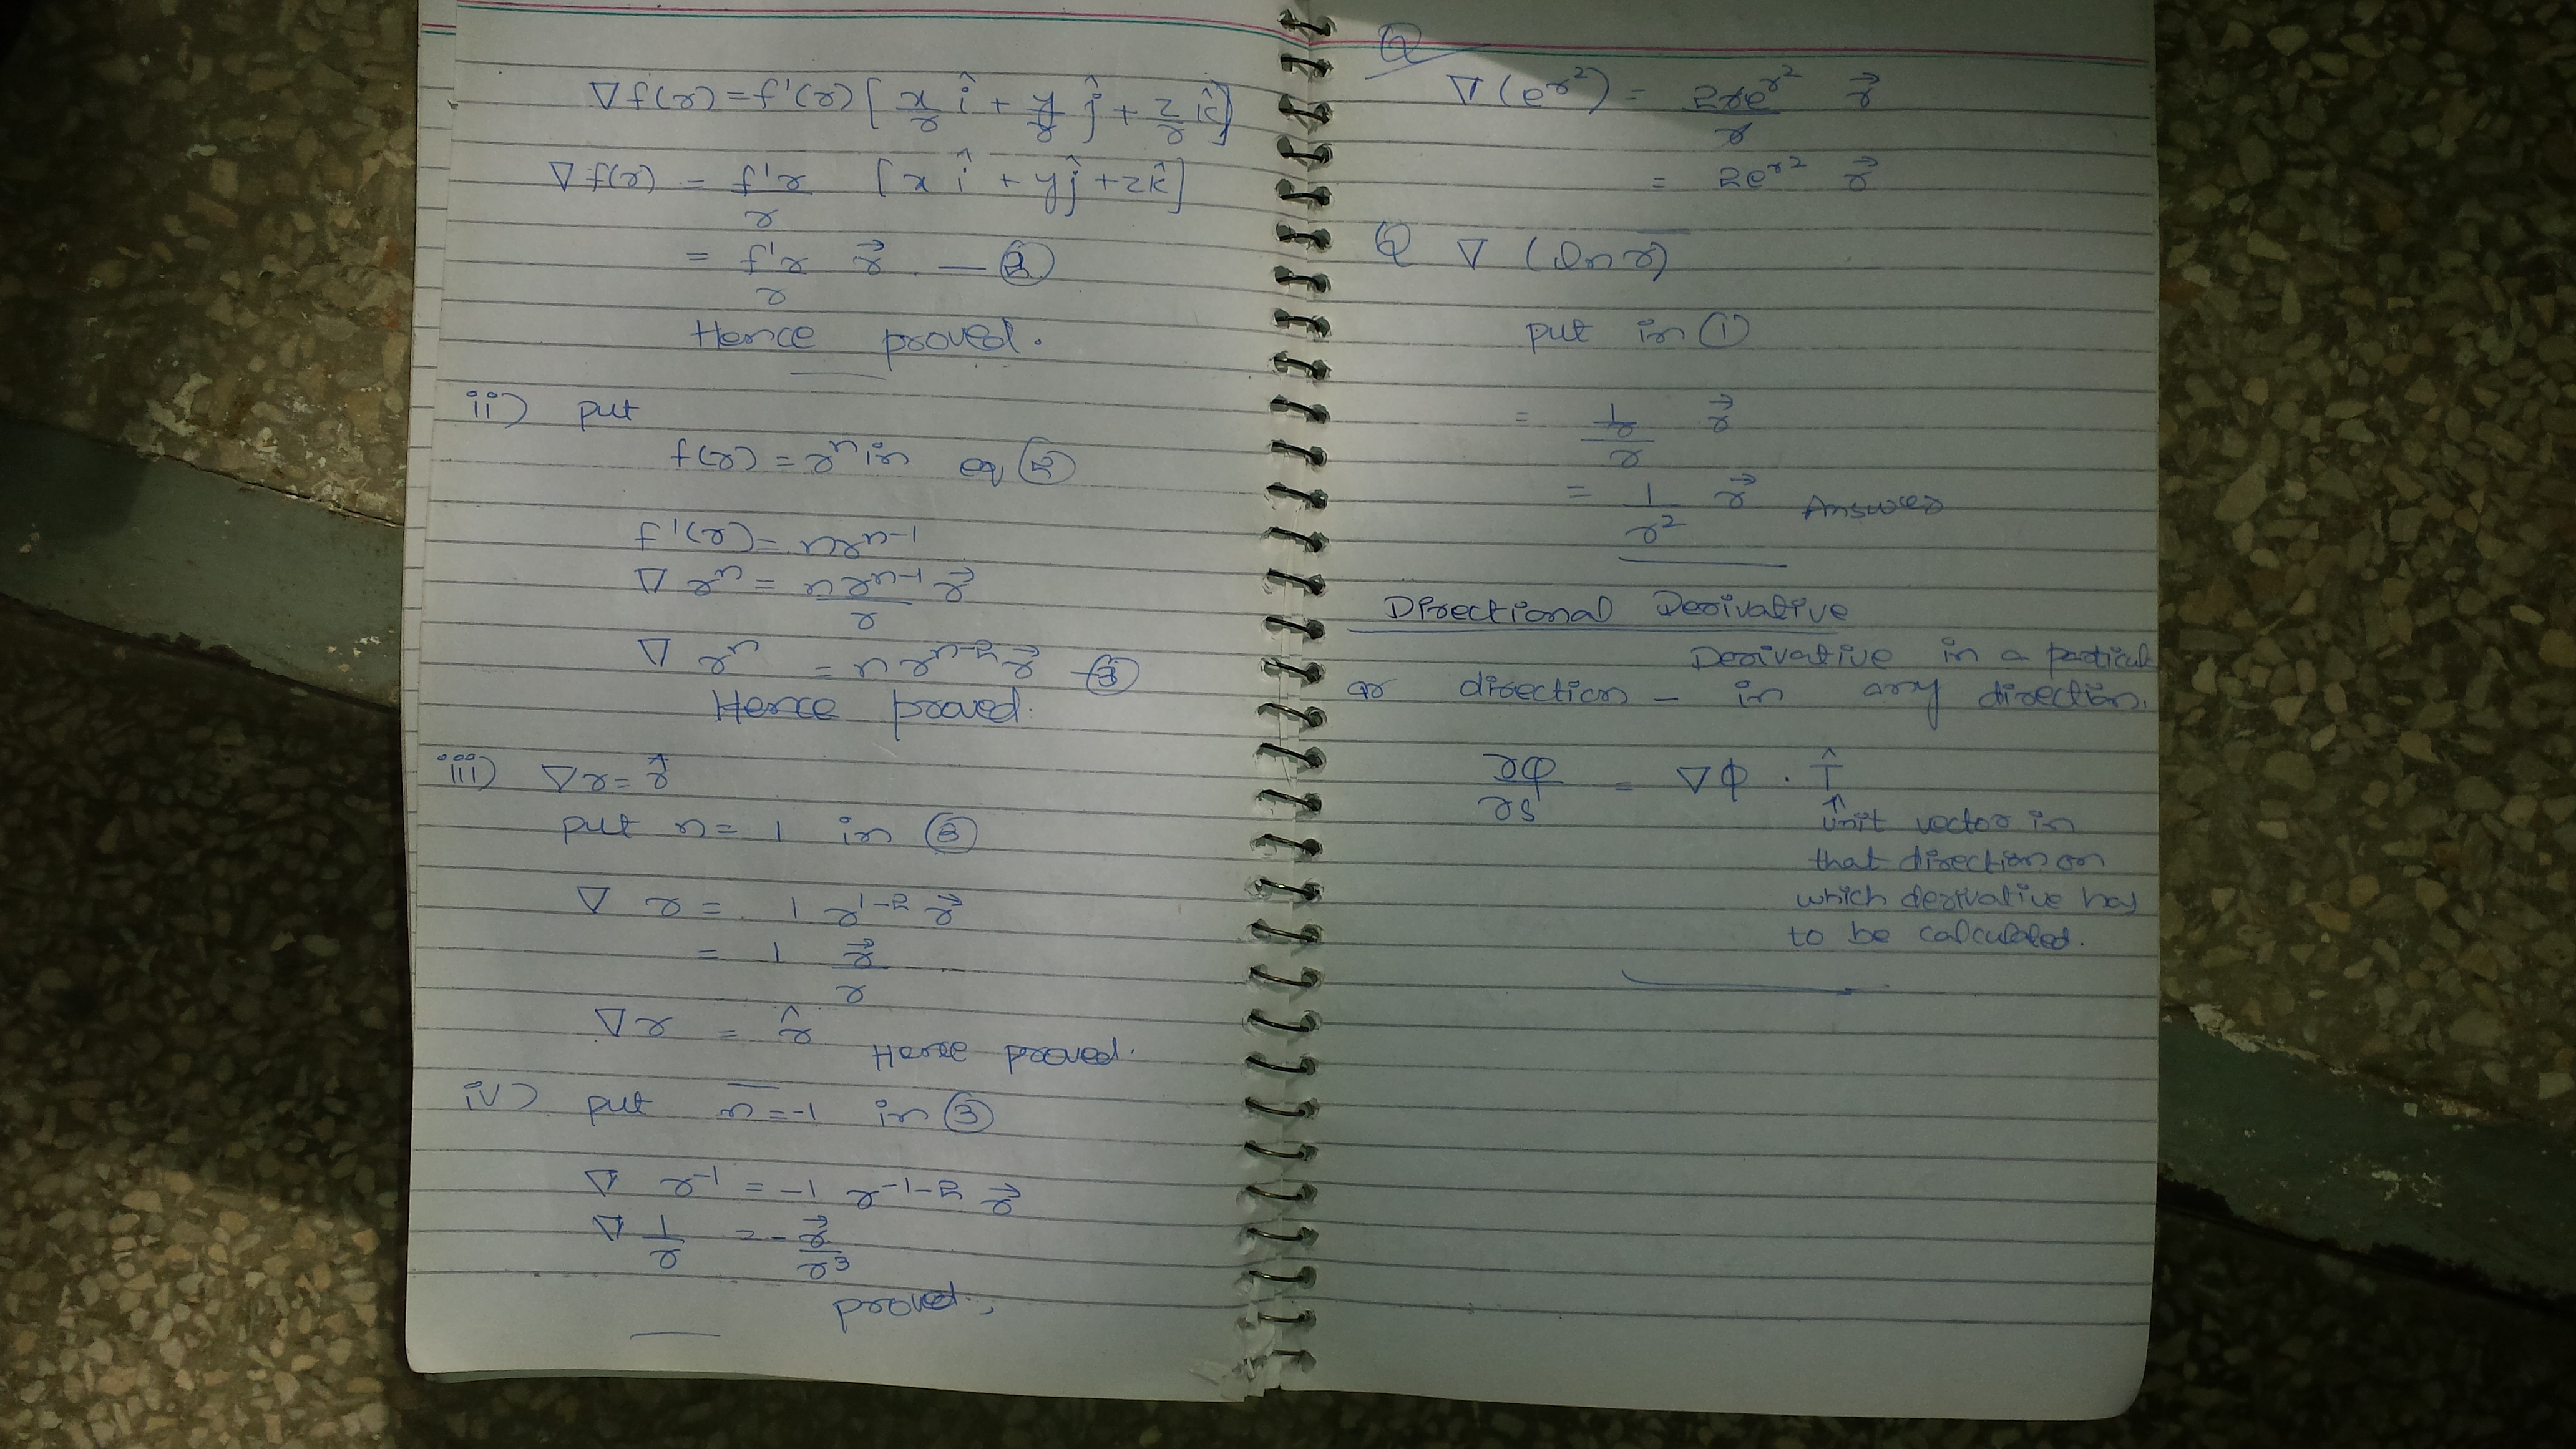 ∇f(r) = f'(r) [x/r î + y/r ĵ + z/r k̂]
∇f(r) = f'r/r [x î + y ĵ + z k̂]
= f'r/r r⃗ — ②
Hence proved.
ii) put
f(r) = rⁿ in eq ②
f'(r) = nrⁿ⁻¹
∇ rⁿ = nrⁿ⁻¹/r r⃗
∇ rⁿ = n rⁿ⁻² r⃗ — ③
Hence proved.
iii) ∇r = r̂
put n = 1 in ③
∇ r = 1 r¹⁻² r⃗
= 1 r⃗/r
∇r = r̂ Hence proved.
iv) put n = -1 in ③
∇ r⁻¹ = -1 r⁻¹⁻² r⃗
∇ 1/r = - r⃗/r³
proved.
Q
∇(e^r²) = 2re^r²/r r⃗
= 2e^r² r⃗
Q ∇ (ln r)
put in ①
= 1/r/r r⃗
= 1/r² r⃗ Answer
Directional Derivative
Derivative in a particul
ar direction - in any direction.
∂φ/∂s = ∇φ . T̂
↑
unit vector in
that direction on
which derivative has
to be calculated.